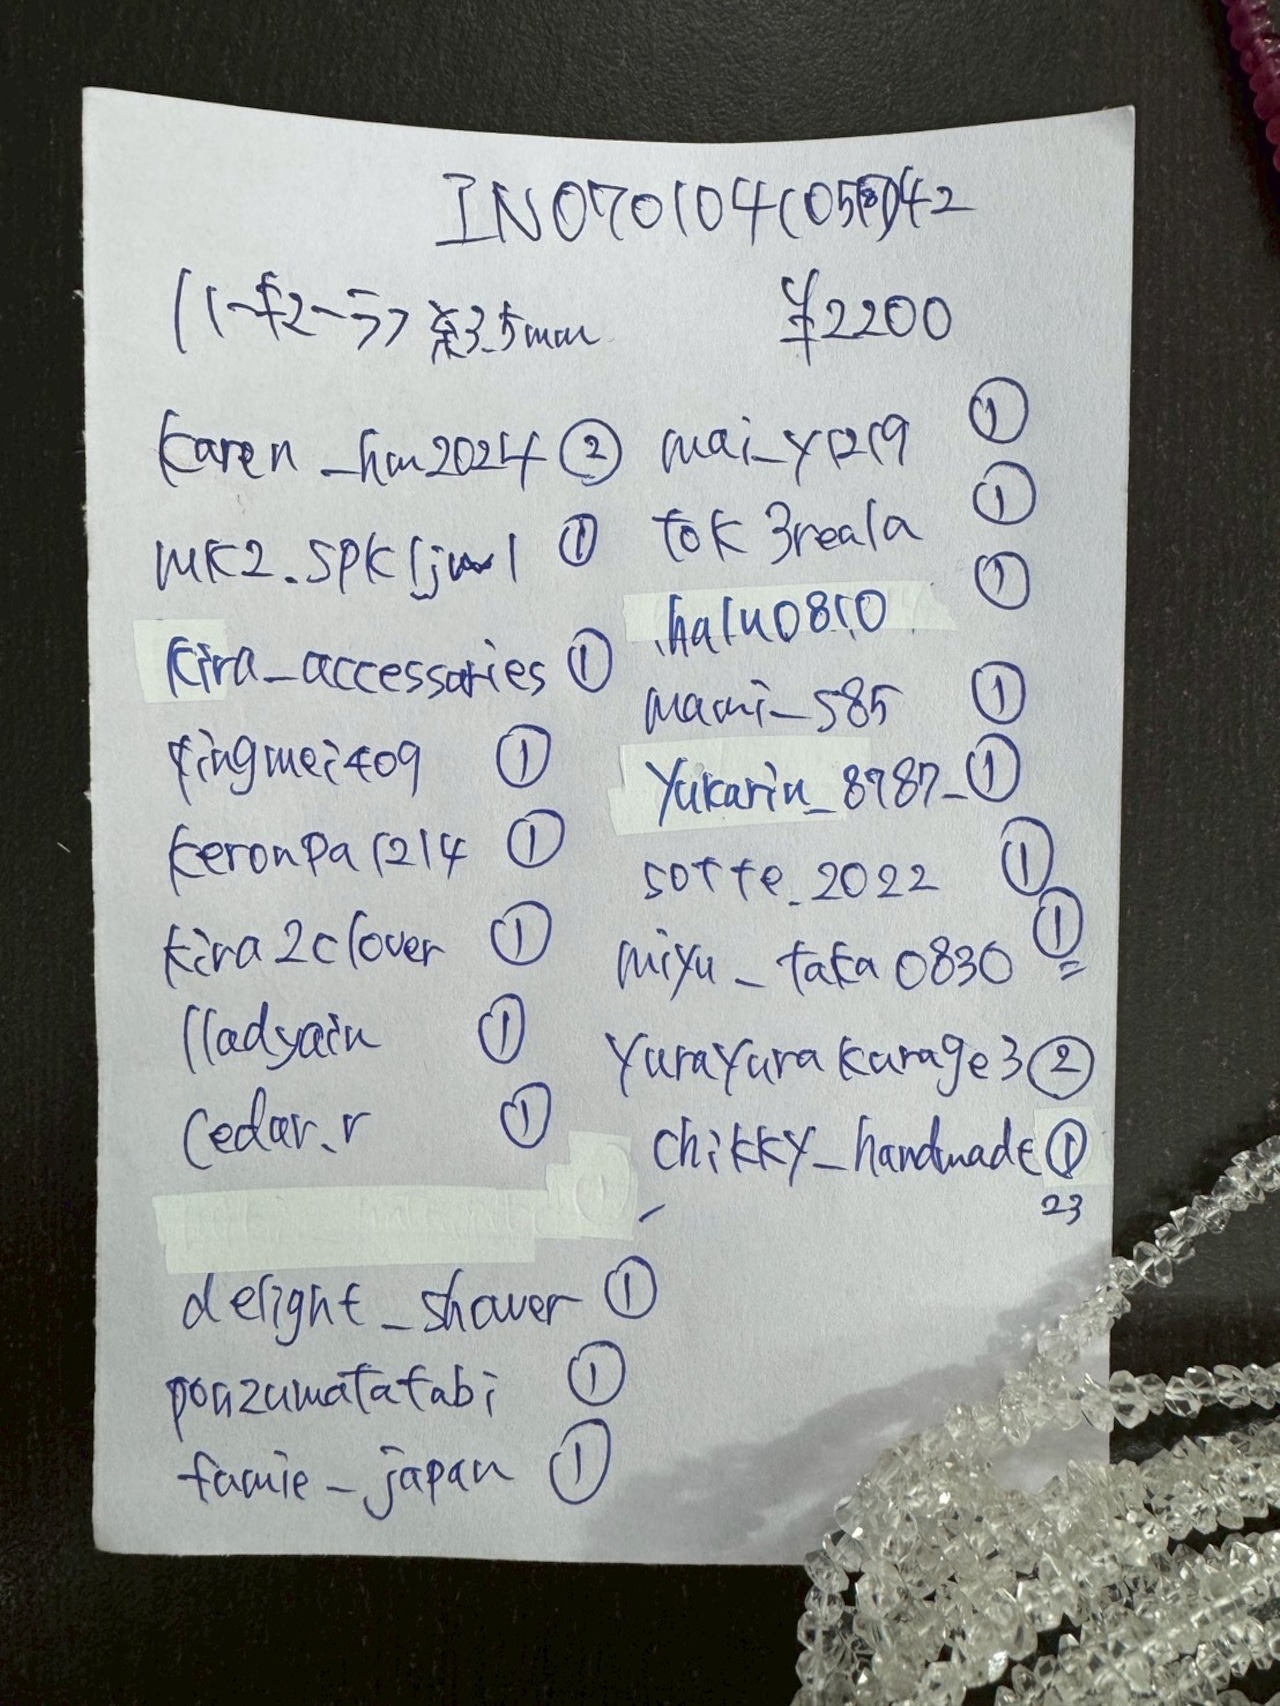 IN070104(058)42
ハーキマーラフ 約3.5mm ¥2200
karen_hm2024 ②
mk2.spkljwl ①
kira_accessaries ①
tingmei409 ①
keronpa1214 ①
kira2clover ①
lladyain ①
cedar.r ①
delight_shower ①
ponzumatatabi ①
famie_japan ①
mai_y1219 ①
tok3reala ①
halu0810 ①
mami_585 ①
yukarin_8787_ ①
sotte_2022 ①
miyu_taka0830 ①
yurayurakurage3 ②
chikky_handmade ①
23